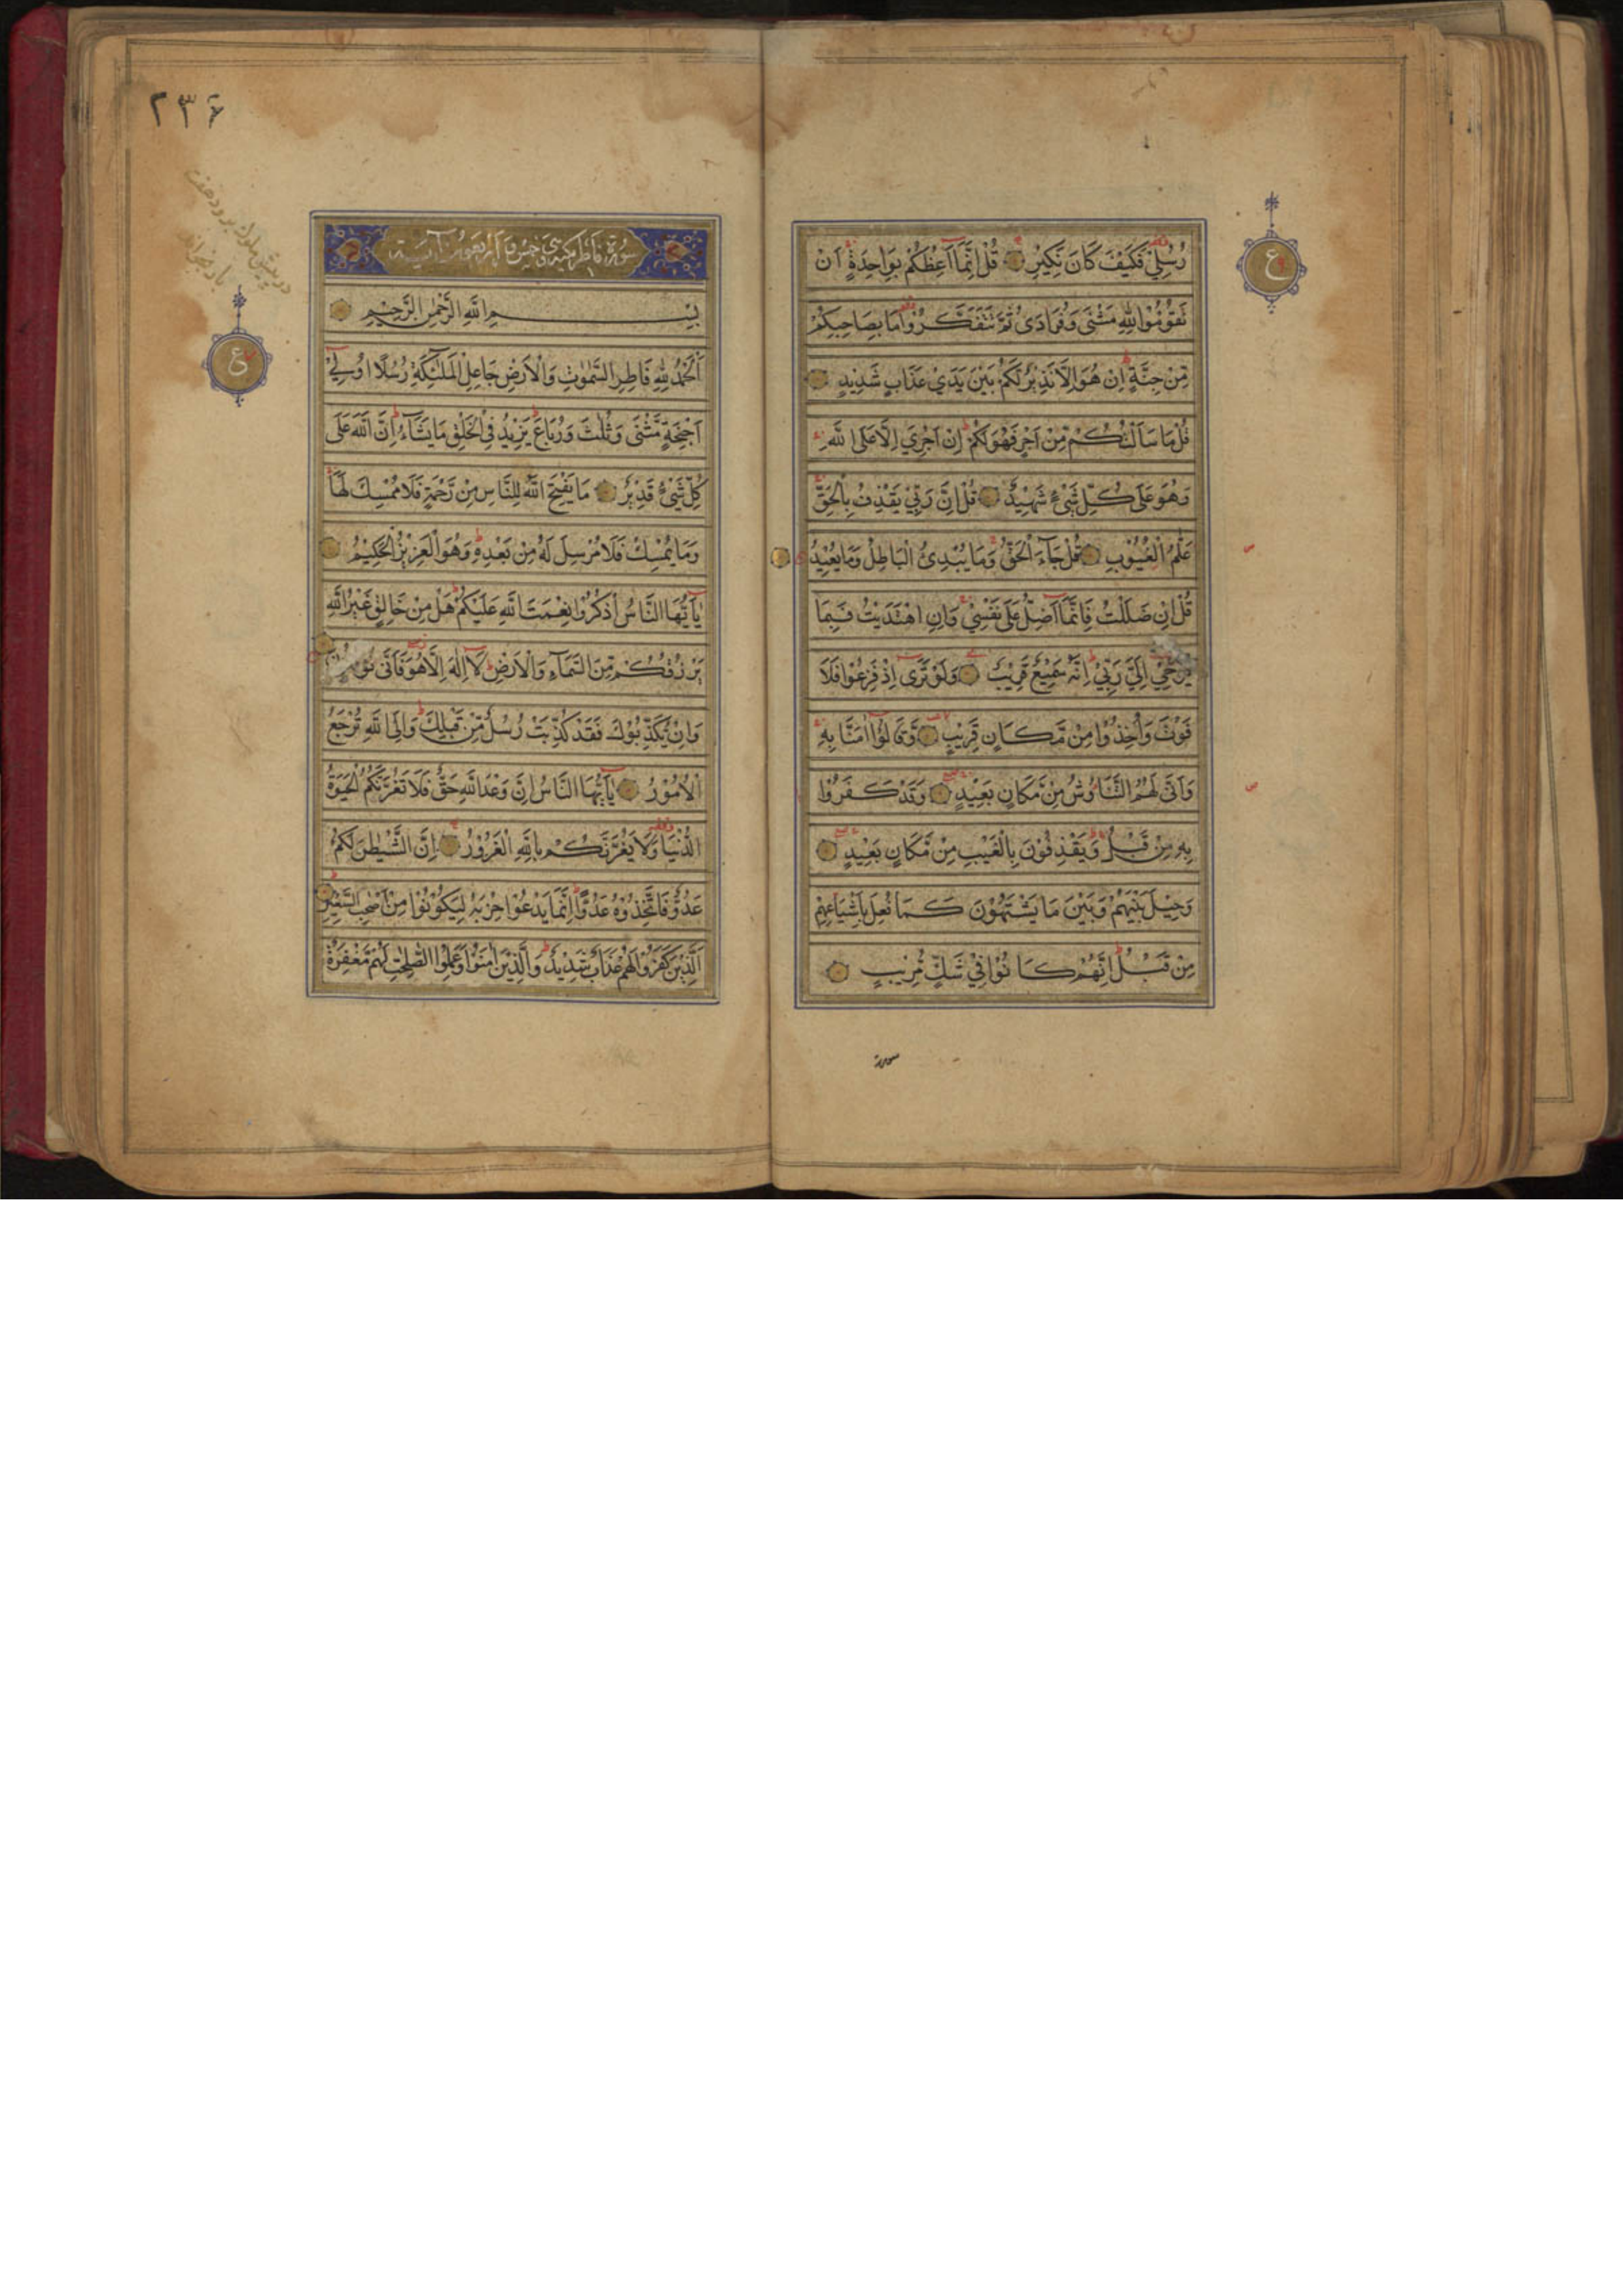 رُسُلِيْ فَكَيْفَ كَانَ نَكِيْرِ قُلْ اِنَّمَاۤ اَعِظُكُمْ بِوَاحِدَةٍ اَنْ
تَقُوْمُوْا لِلّٰهِ مَثْنٰى وَفُرَادٰى ثُمَّ تَتَفَكَّرُوْا مَا بِصَاحِبِكُمْ
مِنْ جِنَّةٍ اِنْ هُوَ اِلَّا نَذِيْرٌ لَكُمْ بَيْنَ يَدَيْ عَذَابٍ شَدِيْدٍ
قُلْ مَا سَاَلْتُكُمْ مِنْ اَجْرٍ فَهُوَ لَكُمْ اِنْ اَجْرِيَ اِلَّا عَلَى اللّٰهِ
وَهُوَ عَلٰى كُلِّ شَيْءٍ شَهِيْدٌ قُلْ اِنَّ رَبِّيْ يَقْذِفُ بِالْحَقِّ
عَلَّامُ الْغُيُوْبِ قُلْ جَآءَ الْحَقُّ وَمَا يُبْدِئُ الْبَاطِلُ وَمَا يُعِيْدُ
قُلْ اِنْ ضَلَلْتُ فَاِنَّمَاۤ اَضِلُّ عَلٰى نَفْسِيْ وَاِنِ اهْتَدَيْتُ فَبِمَا
يُوْحِيْ اِلَيَّ رَبِّيْ اِنَّهُ سَمِيْعٌ قَرِيْبٌ وَلَوْ تَرٰى اِذْ فَزِعُوْا فَلَا
فَوْتَ وَاُخِذُوْا مِنْ مَكَانٍ قَرِيْبٍ وَقَالُوْا اٰمَنَّا بِهِ
وَاَنّٰى لَهُمُ التَّنَاوُشُ مِنْ مَكَانٍ بَعِيْدٍ وَقَدْ كَفَرُوْا
بِهِ مِنْ قَبْلُ وَيَقْذِفُوْنَ بِالْغَيْبِ مِنْ مَكَانٍ بَعِيْدٍ
وَحِيْلَ بَيْنَهُمْ وَبَيْنَ مَا يَشْتَهُوْنَ كَمَا فُعِلَ بِاَشْيَاعِهِمْ
مِنْ قَبْلُ اِنَّهُمْ كَانُوْا فِيْ شَكٍّ مُرِيْبٍ
سورة
ع
٢٣٤
سورة فاطر
بِسْمِ اللّٰهِ الرَّحْمٰنِ الرَّحِيْمِ
اَلْحَمْدُ لِلّٰهِ فَاطِرِ السَّمٰوٰتِ وَالْاَرْضِ جَاعِلِ الْمَلٰٓئِكَةِ رُسُلًا اُولِيْ
اَجْنِحَةٍ مَثْنٰى وَثُلٰثَ وَرُبَاعَ يَزِيْدُ فِي الْخَلْقِ مَا يَشَآءُ اِنَّ اللّٰهَ عَلٰى
كُلِّ شَيْءٍ قَدِيْرٌ مَا يَفْتَحِ اللّٰهُ لِلنَّاسِ مِنْ رَحْمَةٍ فَلَا مُمْسِكَ لَهَا
وَمَا يُمْسِكْ فَلَا مُرْسِلَ لَهُ مِنْ بَعْدِهِ وَهُوَ الْعَزِيْزُ الْحَكِيْمُ
يٰاَيُّهَا النَّاسُ اذْكُرُوْا نِعْمَتَ اللّٰهِ عَلَيْكُمْ هَلْ مِنْ خَالِقٍ غَيْرُ اللّٰهِ
يَرْزُقُكُمْ مِنَ السَّمَآءِ وَالْاَرْضِ لَا اِلٰهَ اِلَّا هُوَ فَاَنّٰى
وَاِنْ يُكَذِّبُوْكَ فَقَدْ كُذِّبَتْ رُسُلٌ مِنْ قَبْلِكَ وَاِلَى اللّٰهِ تُرْجَعُ
الْاُمُوْرُ يٰاَيُّهَا النَّاسُ اِنَّ وَعْدَ اللّٰهِ حَقٌّ فَلَا تَغُرَّنَّكُمُ الْحَيٰوةُ
الدُّنْيَا وَلَا يَغُرَّنَّكُمْ بِاللّٰهِ الْغَرُوْرُ اِنَّ الشَّيْطٰنَ لَكُمْ
عَدُوٌّ فَاتَّخِذُوْهُ عَدُوًّا اِنَّمَا يَدْعُوْا حِزْبَهُ لِيَكُوْنُوْا مِنْ اَصْحٰبِ السَّعِيْرِ
اَلَّذِيْنَ كَفَرُوْا لَهُمْ عَذَابٌ شَدِيْدٌ وَالَّذِيْنَ اٰمَنُوْا وَعَمِلُوا الصّٰلِحٰتِ لَهُمْ مَغْفِرَةٌ
ع